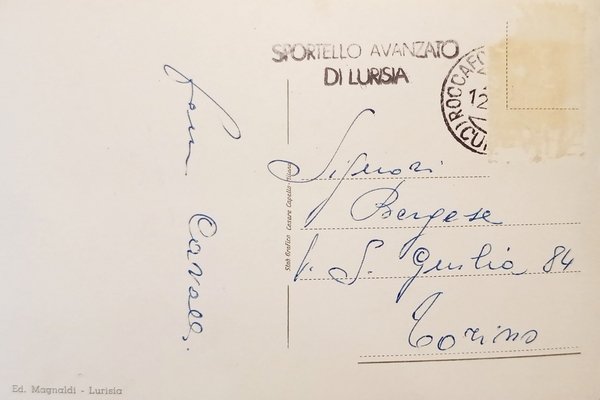 SPORTELLO AVANZATO
DI LURISIA
ROCCAFO
12
(CU
Signori
Bergese
V. S. Giulia 84
Torino
Stab Grafico Cesare Capello - Milano
Fam. Cavallo.
Ed. Magnaldi - Lurisia